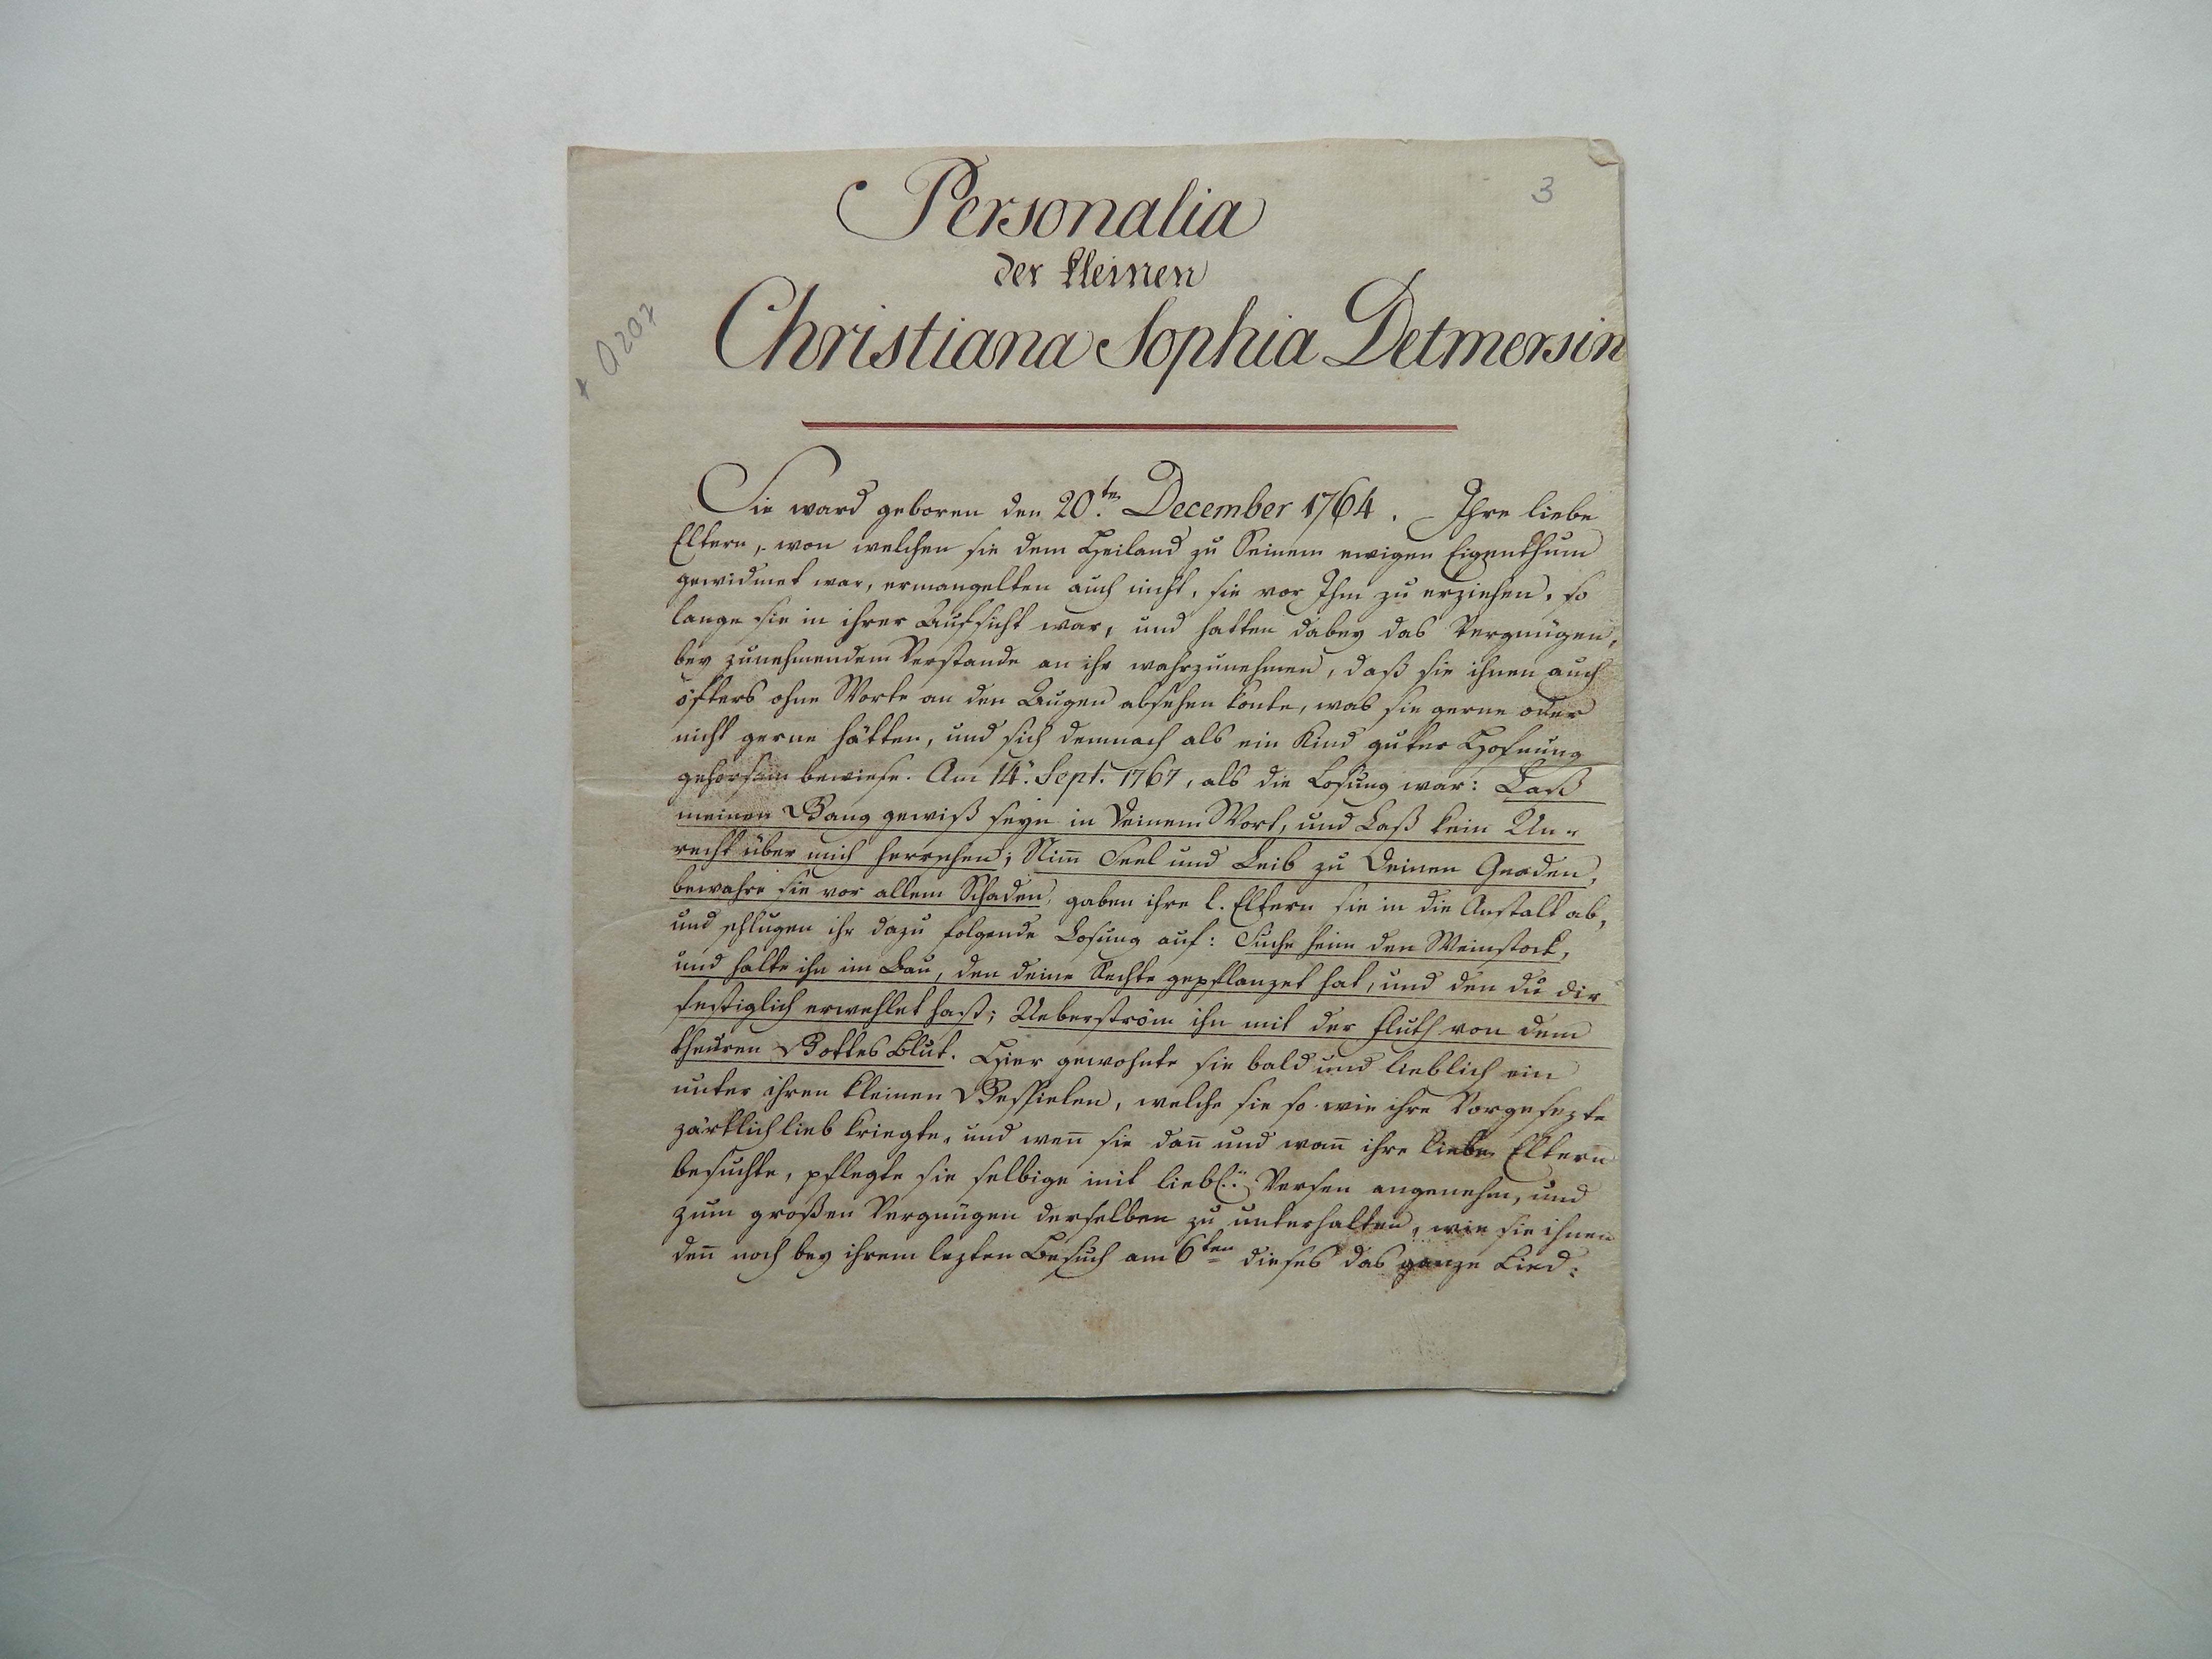 3
Personalia
der kleinen
Christiana Sophia Detmersin
+ 0207
Sie ward geboren den 20.ten December 1764. Ihre liebe
Eltern, von welchen sie dem Heiland zu Seinem ewigen Eigenthum
gewidmet war, ermangelten auch nicht, sie vor Ihm zu erziehen, so
lange sie in ihrer Aufsicht war, und hatten dabey das Vergnügen,
bey zunehmendem Verstande an ihr wahrzunehmen, daß sie ihnen auch
öfters ohne Worte an den Augen absehen konte, was sie gerne oder
nicht gerne hätten, und sich demnach als ein Kind guter Hofnung
gehorsam beweise. Am 14. Sept. 1767, als die Losung war: Laß
meinen Gang gewiß seyn in Deinem Wort, und Laß kein Un-
recht über mich herrschen; Nim̄ Seel und Leib zu Deinen Gnaden,
bewahre sie vor allem Schaden, gaben ihre l. Eltern sie in die Anstalt ab,
und schlugen ihr dazu folgende Losung auf: Suche heim den Weinstock,
und halte ihn im Bau, den deine Rechte gepflanzet hat, und den du dir
festiglich erwehlet hast; Ueberström ihn mit der Fluth von dem
theuren Gottes Blut. Hier gewohnte sie bald und lieblich ein
unter ihren kleinen Gespielen, welche sie so wie ihre Vorgesezte
zärtlich lieb kriegte, und wen̄ sie dan̄ und wan̄ ihre liebe Eltern
besuchte, pflegte sie selbige mit liebl. Versen angenehm, und
zum großen Vergnügen derselben zu unterhalten, wie sie ihnen
den̄ noch bey ihrem lezten Besuch am 6ten dieses das ganze Lied: